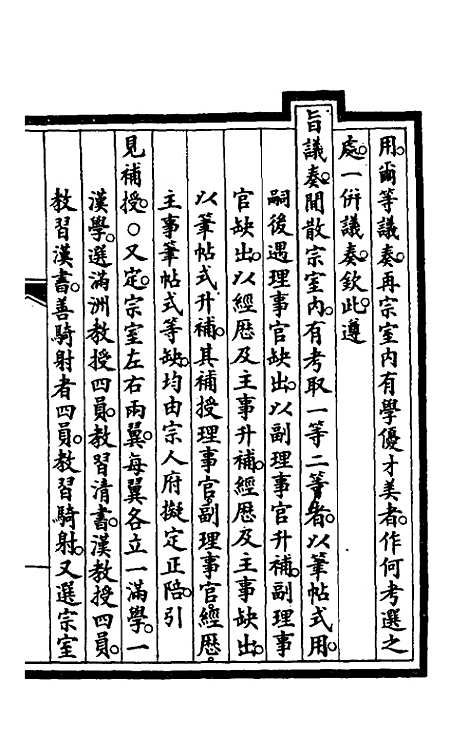 用。爾等議奏。再宗室內有學優才美者。作何考選之
處。一併議奏。欽此。遵
旨議奏。閒散宗室內。有考取一等二等者。以筆帖式用。
嗣後遇理事官缺出。以副理事官升補。副理事
官缺出。以經歷及主事升補。經歷及主事缺出。
以筆帖式升補。其補授理事官。副理事官。經歷。
主事筆帖式等缺。均由宗人府擬定正陪。引
見補授。○又定。宗室左右兩翼。每翼各立一滿學。一
漢學。選滿洲教授四員。教習清書。漢教授四員。
教習漢書。善騎射者四員。教習騎射。又選宗室